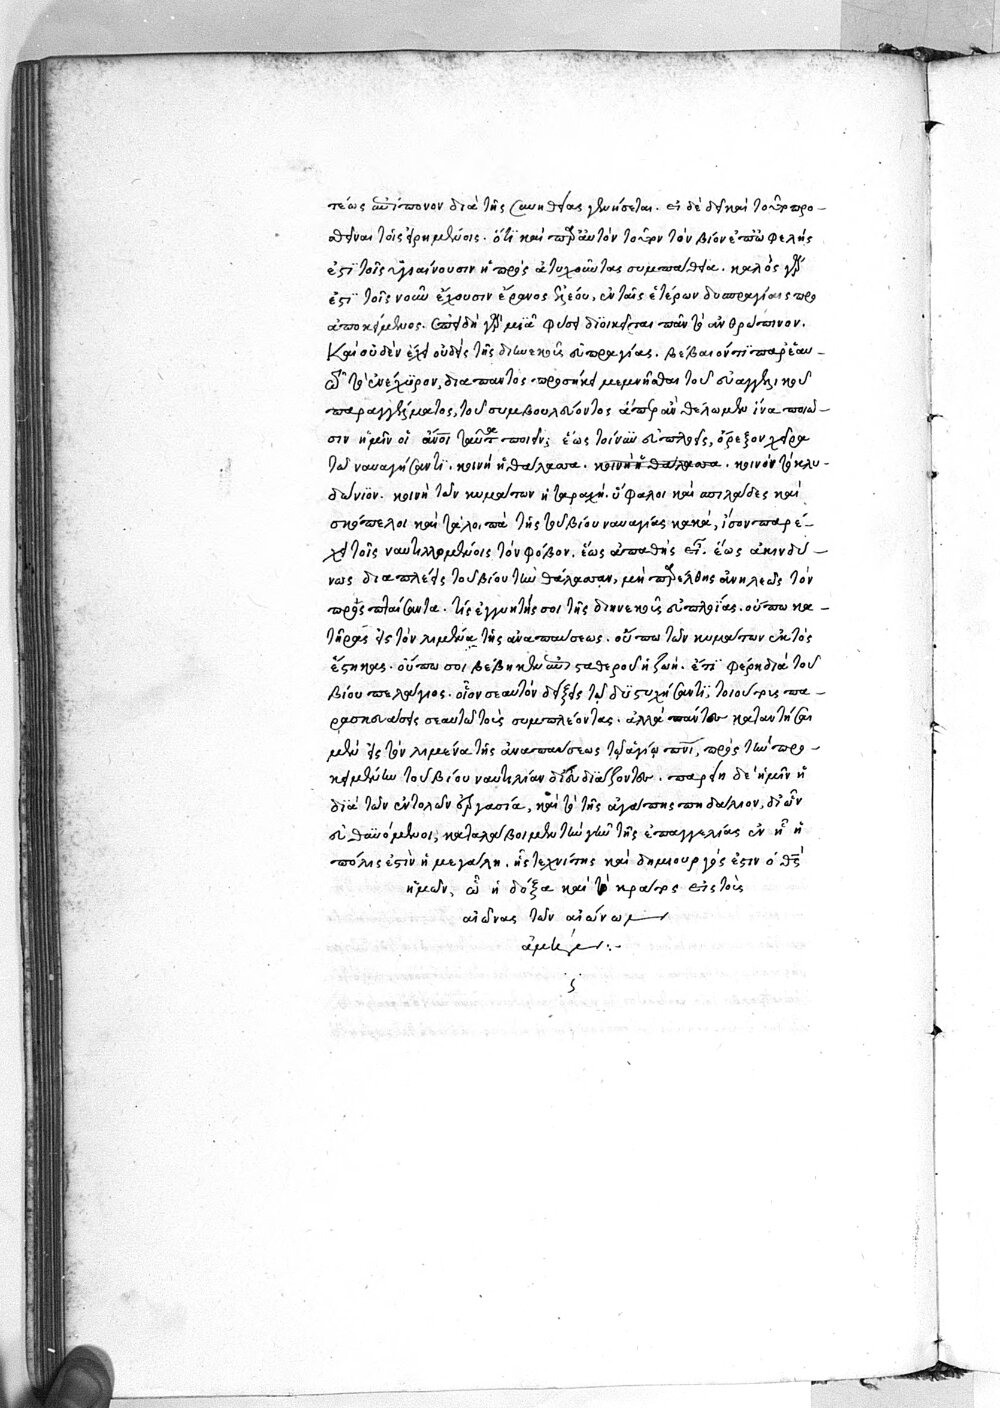 τέως ἀντίπονον διὰ τῆς συνηθείας γενήσεται. εἰ δὲ δεῖ καὶ τοῦτο προ-
θεῖναι τοῖς εἰρημένοις. ὅτι καὶ πρὸς αὐτὸν τοῦτον τὸν βίον ἐπωφελής
ἐστὶ τοῖς ὑγιαίνουσιν ἡ πρὸς ἀτυχοῦντας συμπάθεια. καλὸς γὰρ
ἐστὶ τοῖς νοῦν ἔχουσιν ἔρανος ἐλέου, ἐν ταῖς ἑτέρων δυσπραγίαις προ
αποκείμενος. ἐπειδὴ γὰρ μιᾷ φύσει διοικεῖται πᾶν τὸ ἀνθρώπινον.
καὶ οὐδὲν ἔχει οὐδεὶς τῆς διηνεκοῦς εὐπραγίας. βέβαιόν τι παρ' ἑαυ-
τῷ τὸ ἐνέχυρον, διαπαντὸς προσήκει μεμνῆσθαι τοῦ εὐαγγελικοῦ
παραγγέλματος, τοῦ συμβουλεύοντος ἅπερ ἂν θέλωμεν ἵνα ποιῶ-
σιν ἡμῖν οἱ ἄνοι ταῦτα ποιεῖν, ἕως τοίνυν εὐπλοεῖς, ὄρεξον χεῖρα
τῷ ναυαγήσαντι. κοινὴ ἡ θάλασσα. κοινὴ ἡ θάλασσα. κοινὸν τὸ κλυ-
δώνιον. κοινὴ τῶν κυμάτων ἡ ταραχή. ὕφαλοι καὶ σπιλάδες καὶ
σκόπελοι καὶ τὰ λοιπὰ τῆς τοῦ βίου ναυαγίας κακά, ἴσον παρέ-
χει τοῖς ναυτιλλομένοις τὸν φόβον. ἕως ἀπαθὴς εἶ. ἕως ἀκινδύ-
νως διαπλέεις τοῦ βίου τὴν θάλασσαν, μὴ παρέλθῃς ἀνηλεῶς τὸν
προσπταίσαντα. τίς ἐγγυητής σοι τῆς διηνεκοῦς εὐπλοΐας. οὔπω κα
τῆρας εἰς τὸν λιμένα τῆς ἀναπαύσεως. οὔπω τῶν κυμάτων ἐκτὸς
ἕστηκας. οὔπω σοι βέβηκεν ἐπὶ σταθεροῦ ἡ ζωή. ἔτι φέρῃ διὰ τοῦ
βίου πελάγιος. οἷον σεαυτὸν δείξεις τῷ δυστυχήσαντι, τοιούτους πα-
ρασκευάσεις σεαυτῷ τοὺς συμπλέοντας. ἀλλὰ πάντων καταντῆσαι
μὲν εἰς τὸν λιμένα τῆς ἀναπαύσεως τῷ ἁγίῳ πνι, πρὸς τὴν προ-
κειμένην τοῦ βίου ναυτιλίαν διευοδιάζοντος. παρείη δὲ ἡμῖν ἡ
διὰ τῶν ἐντολῶν ἐργασία, καὶ τὸ τῆς ἀγάπης πηδάλιον, δι' ὧν
εὐθυνόμενοι, καταλάβοιμεν τὴν γῆν τῆς ἐπαγγελίας ἐν ᾗ ἡ
πόλις ἐστὶν ἡ μεγάλη. ἧς τεχνίτης καὶ δημιουργός ἐστιν ὁ θς
ἡμῶν, ᾧ ἡ δόξα καὶ τὸ κράτος εἰς τοὺς
αἰῶνας τῶν αἰώνων
ἀμήν